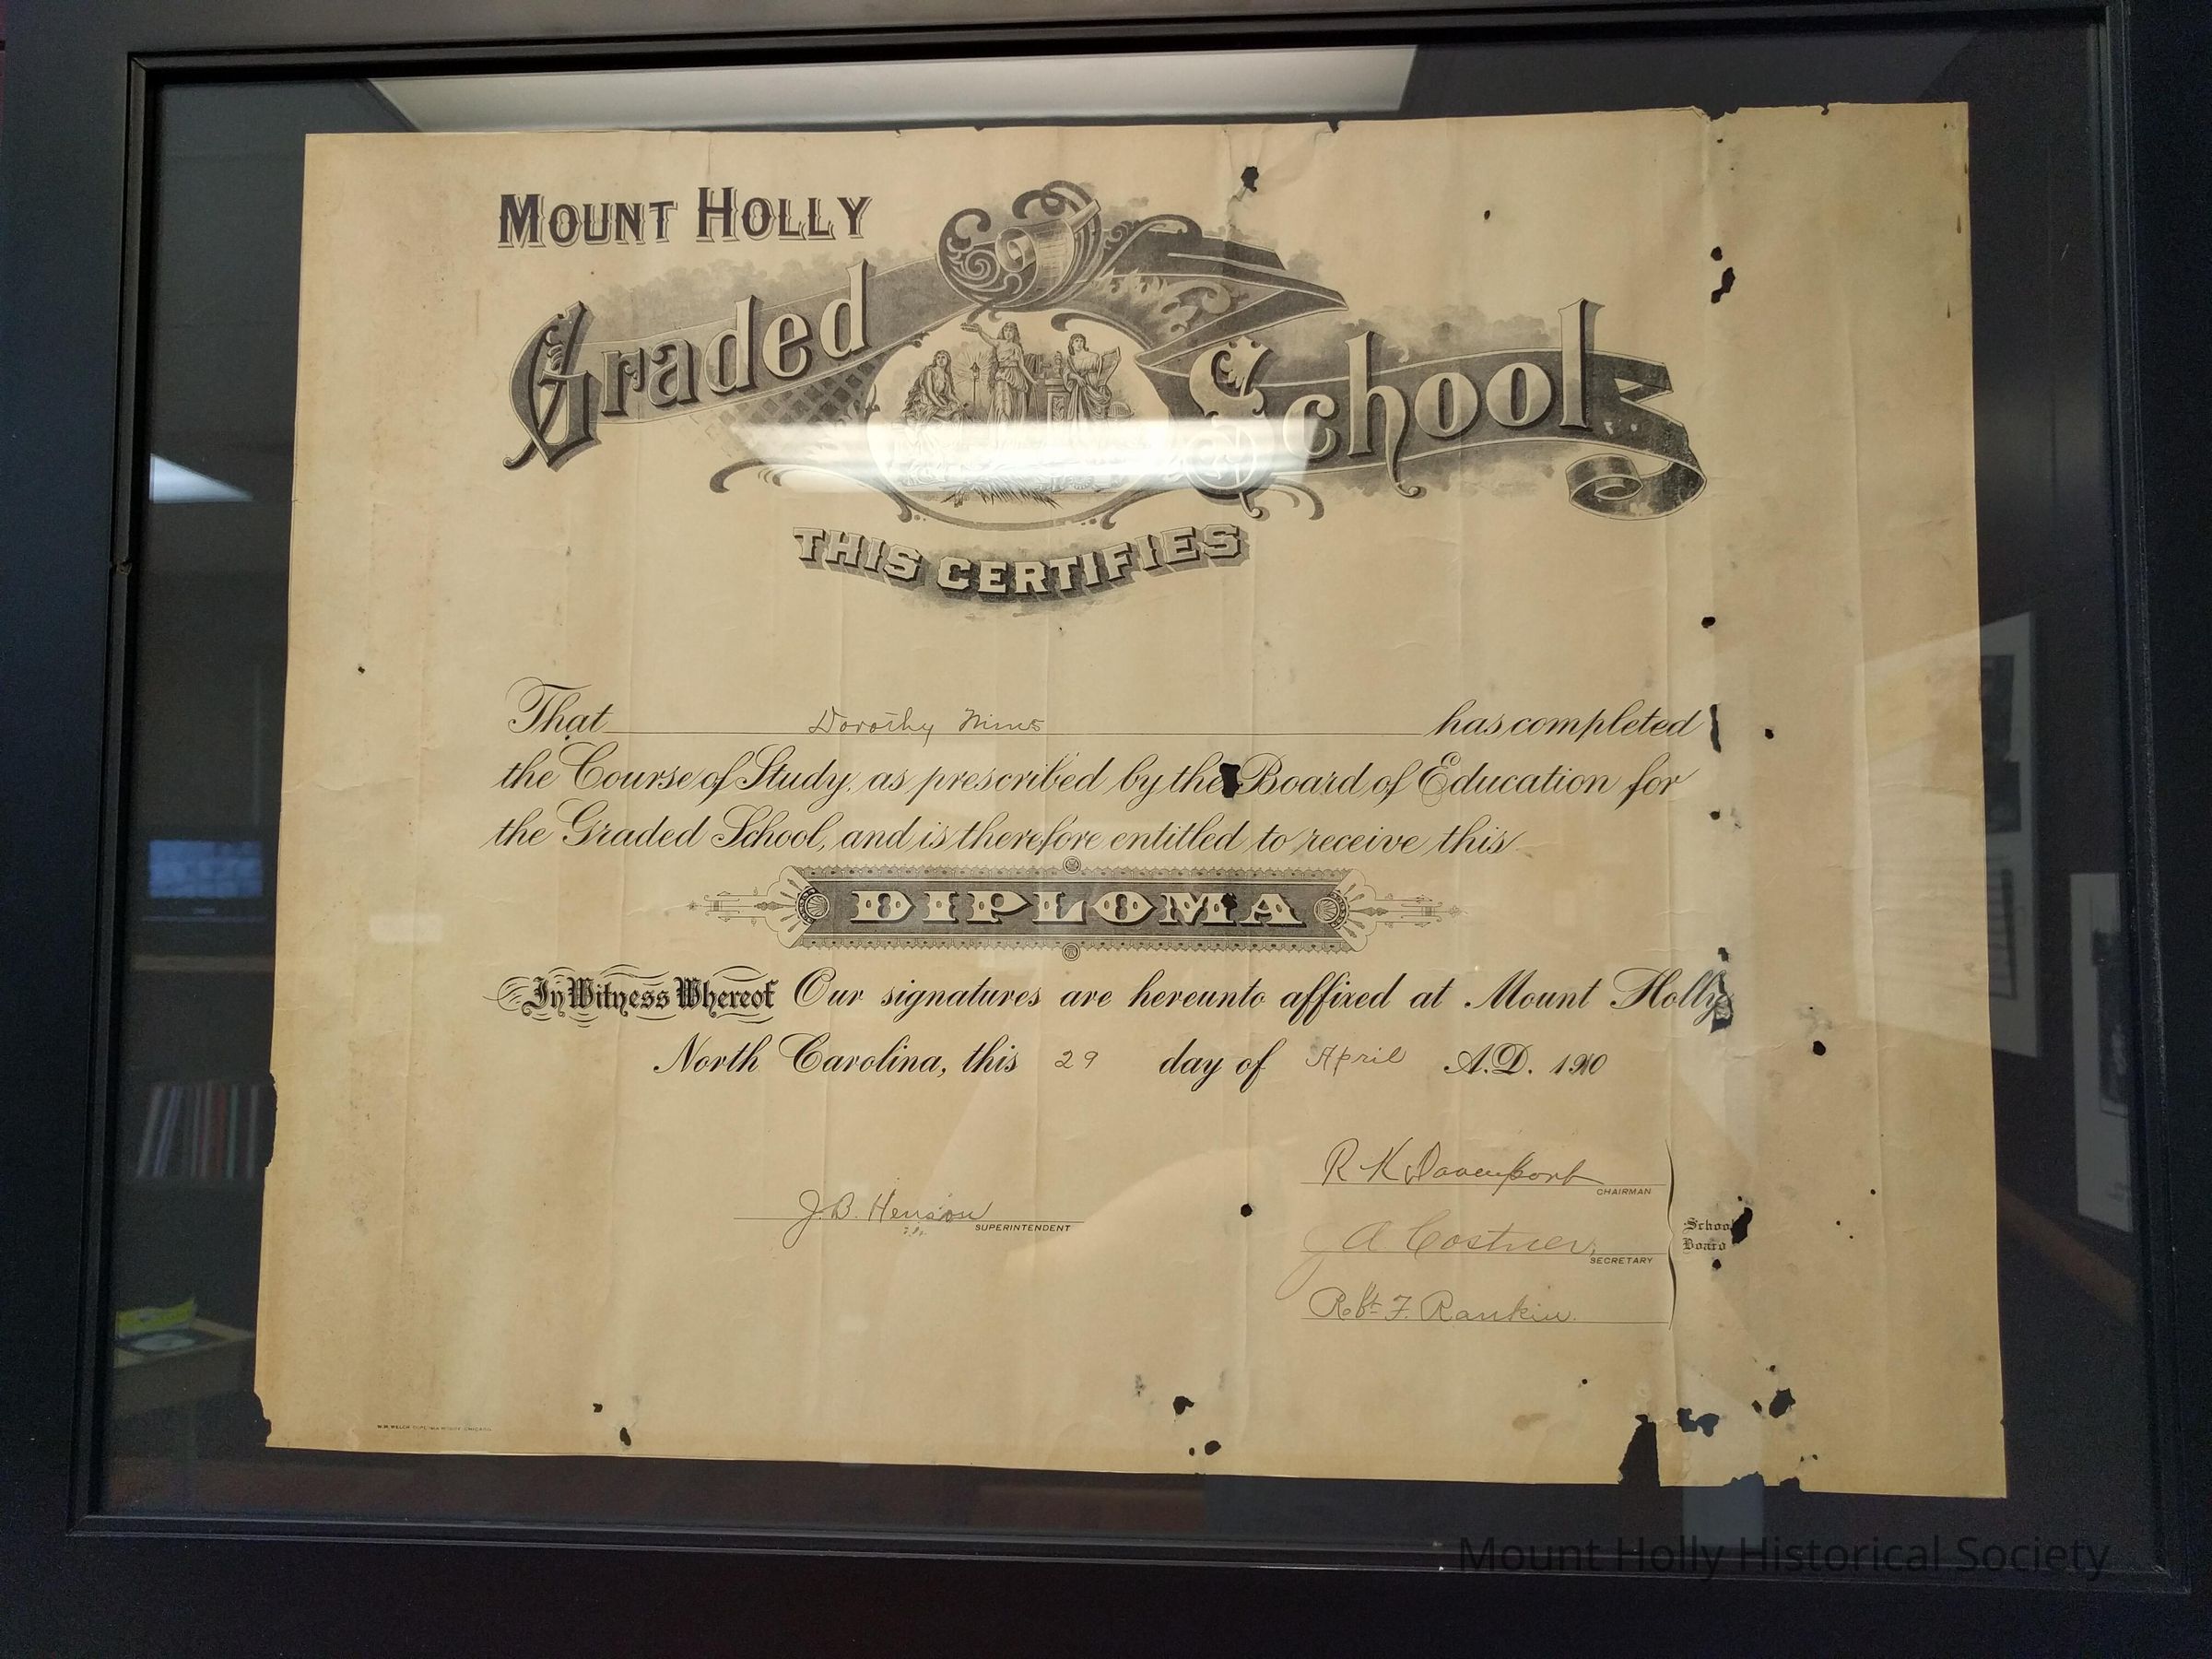 MOUNT HOLLY
Graded School
THIS CERTIFIES
That Dorothy Nims has completed
the Course of Study, as prescribed by the Board of Education for
the Graded School, and is therefore entitled to receive this
DIPLOMA
In Witness Whereof Our signatures are hereunto affixed at Mount Holly
North Carolina, this 29 day of April A.D. 1910
R K Davenport
CHAIRMAN
J. B. Henson
SUPERINTENDENT
J A Costner,
SECRETARY
School
Board
Robt. F. Rankin.
Mount Holly Historical Society